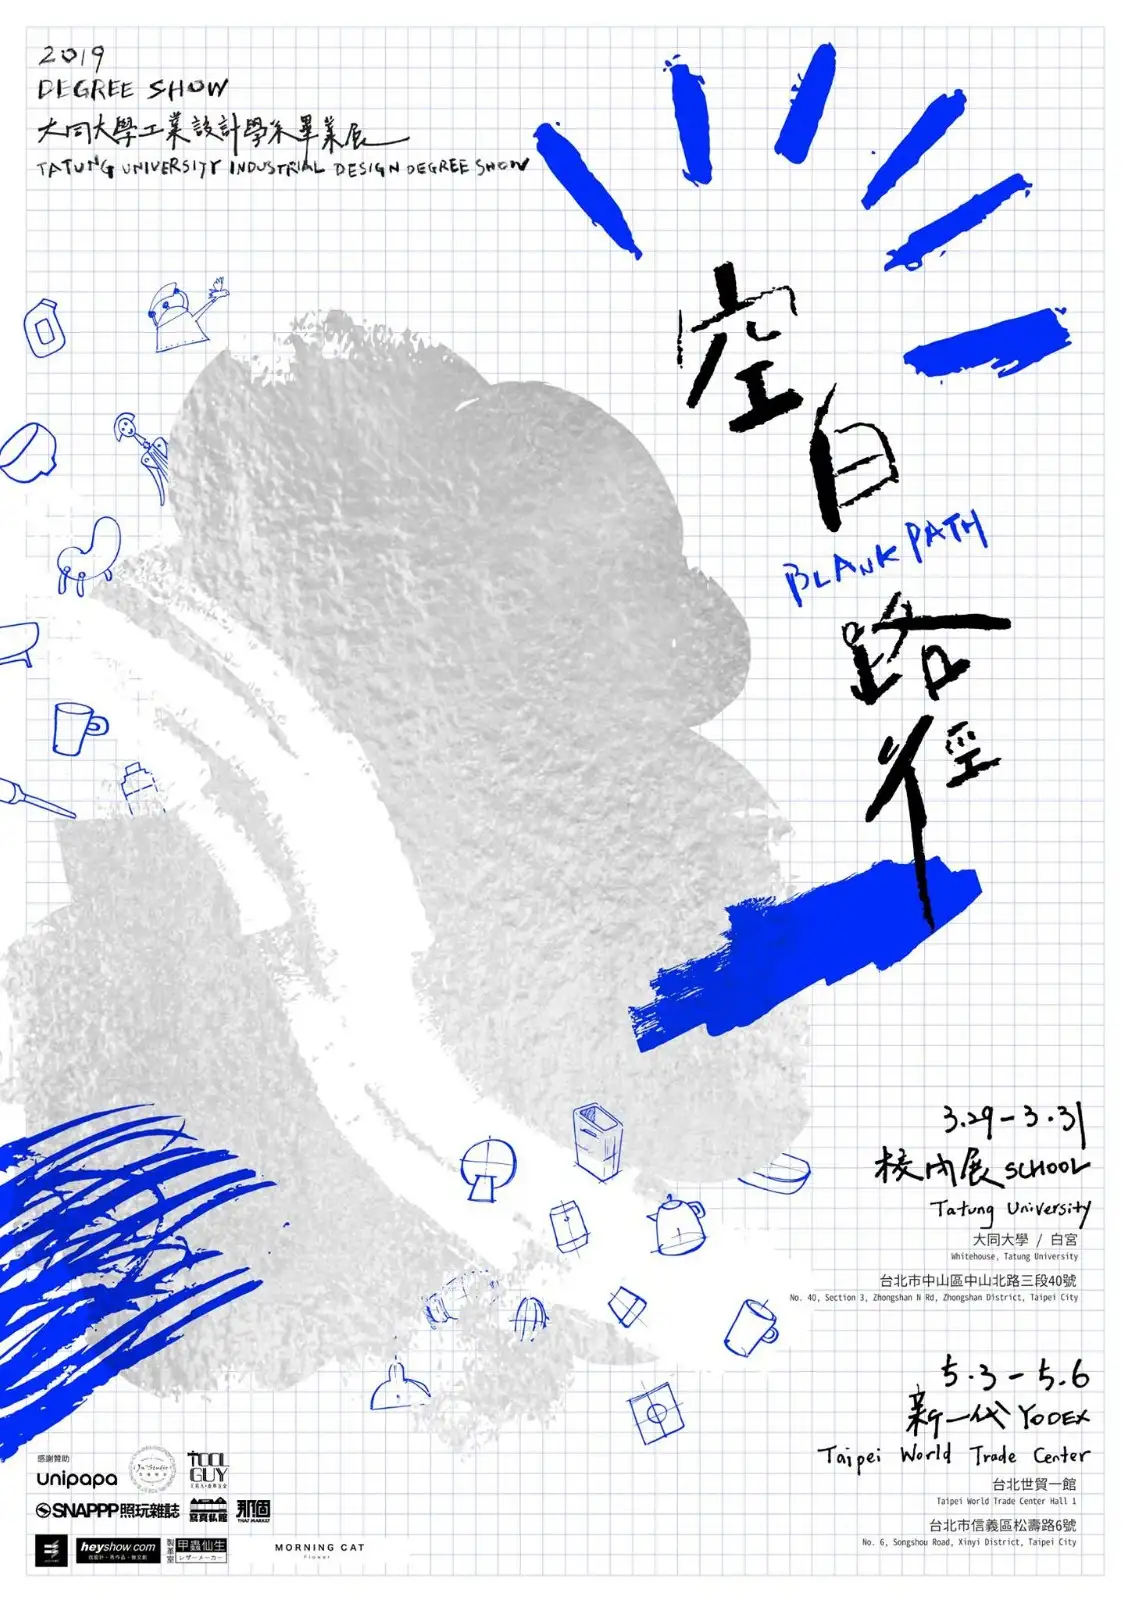 2019
DEGREE SHOW
大同大學工業設計學系畢業展
TATUNG UNIVERSITY INDUSTRIAL DESIGN DEGREE SHOW
空白
BLANK PATH
路徑
3.29-3.31
校內展 SCHOOL
Tatung University
大同大學 / 白宮
Whitehouse, Tatung University
台北市中山區中山北路三段40號
No. 40, Section 3, Zhongshan N Rd, Zhongshan District, Taipei City
5.3-5.6
新一代 YODEX
Taipei World Trade Center
台北世貿一館
Taipei World Trade Center Hall 1
台北市信義區松壽路6號
No. 6, Songshou Road, Xinyi District, Taipei City
感謝贊助
unipapa
TOOL GUY
SNAPPP照玩雜誌
寫真私館
那個
THAT MARKET
heyshow.com
製革室
甲蟲仙生
レザーメーカー
MORNING CAT
Flower